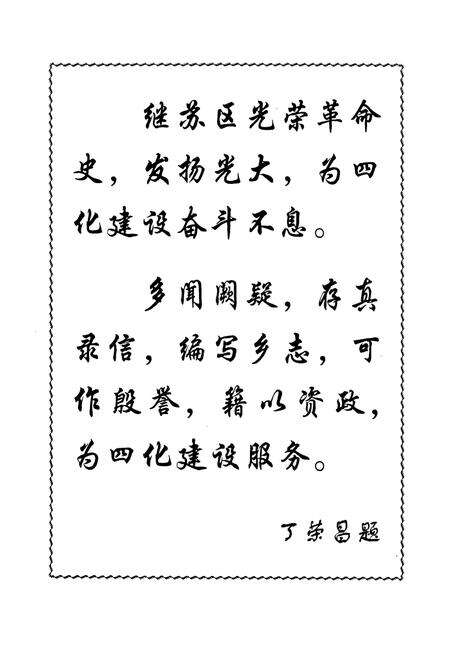 继苏区光荣革命
史，发扬光大，为四
化建设奋斗不息。
多闻阙疑，存真
录信，编写乡志，可
作殷誉，籍以资政，
为四化建设服务。
丁荣昌题